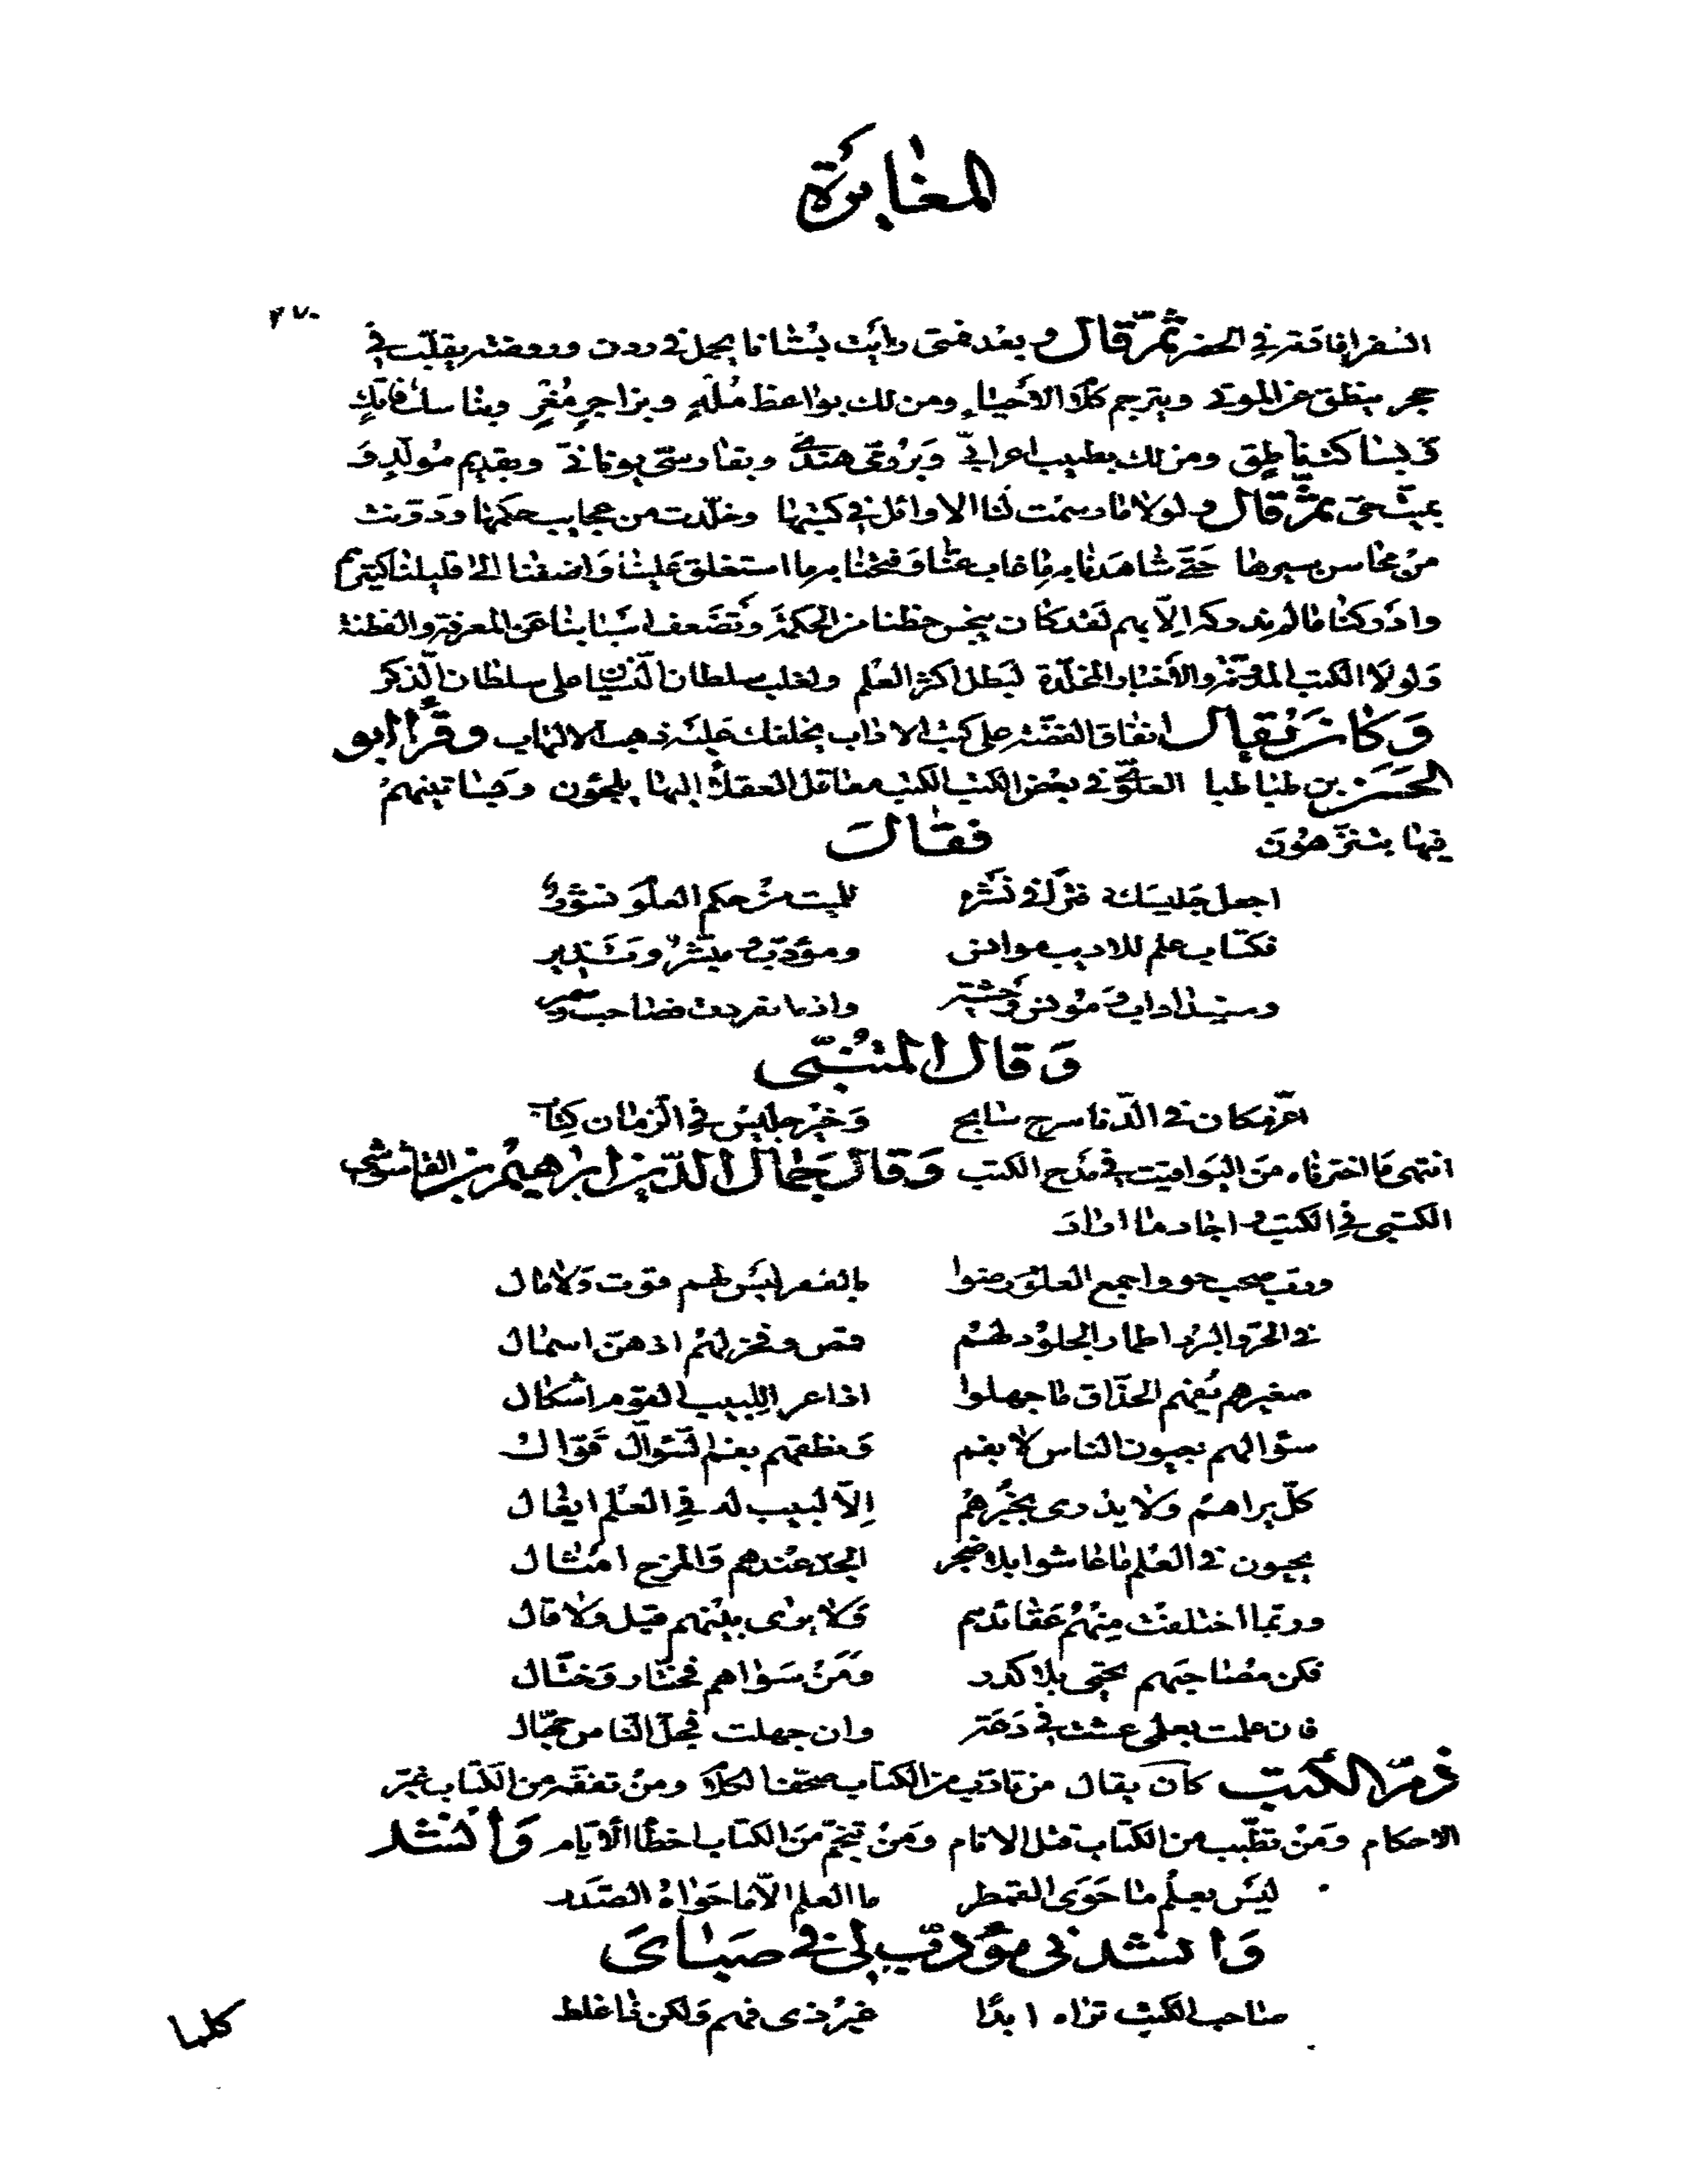 المغايرة
٢٧٠
السفر افادته في الحضر ثمّ قال وبعد فمتى رأيت بستانا يحمل في ردن وروضة يقلّب في
حجر ينطق عن الموتى ويترجم كلام الاحياء ومن لك بواعظ مُلْهٍ وبزاجرٍ مُغْرٍ وبناسك فاتك
وبساكت ناطق ومن لك بطبيب اعرابي وبرومى هندى وبفارسى يونانى وبقديم مولّد و
بميت حى ثمّ قال ولولا ما رسمت لنا الاوائل في كتبها وخلّدت من عجايب حكمها ودوّنت
من محاسن سيرها حتى شاهدنا به ما غاب عنّا وفتحنا به ما استغلق علينا واضفنا الى قليلنا كثيرهم
وادركنا ما لم ندركه الّا بهم لقد كان يبخس حظنا من الحكمة وتضعف اسبابنا عن المعرفة والفطنة
ولولا الكتب المدوّنة والاخبار المخلّدة لبطل اكثر العلم ولغلب سلطان النسيان على سلطان الذكر
وكان يقال انفاق الفضّة على كتب الاداب يخلفك عليه ذهب الالباب وقرأ ابو
الحسن بن طباطبا العلوىّ في بعض الكتب الكتب معاقل العقلاء اليها يلجؤن وبساتينهم
فيها يتنزّهون فقال
اجعل جليسك دفترا في نشره للميت من حكم العلوم نشور
فكتاب علم للاديب موانس ومؤدّب ومبشّر ونذير
ومفيد اداب ومونس وحشة واذا انفردت فصاحب وسمير
وقال المتنبّى
اعزّ مكان في الدّنا سرج سابح وخير جليس في الزمان كتاب
انتهى ما اخترناه من اليواقيت في مدح الكتب وقال جمال الدّين ابراهيم بن الفاشوشى
الكتبى في الكتب واجاد ما اراد
وربّ صحب حووا جمع العلوم رضوا بالفقر ليس لهم قوت ولا مال
في الحرّ والبرد اطمار الجلود لهم قمص وفخر لهم اذ هنّ اسمال
صغيرهم يفهم الحذّاق ما جهلوا اذا عرا للبيب القوم اشكال
سؤالهم يجيبون الناس لا بفم ونطقهم بفم السّوّال قوّال
كلّ يراهم ولا يدرى بخبرهم الّا لبيب له في العلم ايغال
يجيبون في العلم ما عاشوا بلا ضجر الجدّ عندهم والمزح امثال
وربّما اختلفت منهم عقائدهم ولا يرى بينهم قيل ولا قال
فكن مصاحبهم تحيى بلا كدر ومن سواهم فختّار وختّال
فان علمت بعلمى عشت في دعة وان جهلت فجلّ النّاس جهّال
ذمّ الكتب كان يقال من تادّب من الكتاب صحّف الكلام ومن تفقّه من الكتاب غيّر
الاحكام ومن تطبّب من الكتاب قتل الانام ومن تنجّم من الكتاب اخطأ الايّام وأنشد
ليس بعلم ما حوى القمطر ما العلم الّا ما حواه الصّدر
وانشدنى مؤدّب لى في صباى
صاحب الكتب تراه ابدًا غير ذى فهم ولكن ذا غلط
كلما